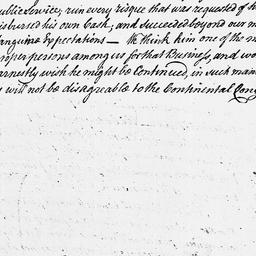 ublic Service, run every risque that was requested of h
isbursed his own Cash, and succeeded beyond our m
anguine Expectations — We think him one of the m
roper persons among us for that Business, and wo
arnestly wish he might be Continued, in such man
s will not be disagreable to the Continental Con